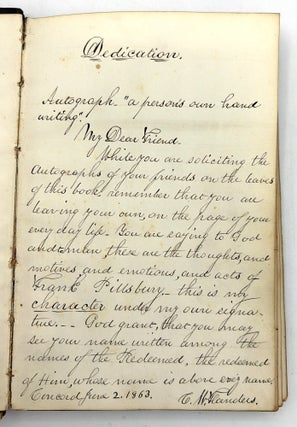 Dedication.
Autograph - "a person's own hand
writing".
My Dear Friend.
While you are soliciting the
Autographs of your friends on the leaves
of this book, remember that you are
leaving your own, on the page of your
every day life. You are saying to God
and men, these are the thoughts, and
motives, and emotions, and acts of
Frank Pillsbury - this is my
character under my own signa-
ture. -- God grant, that you may
see your name written among the
names of the Redeemed, the redeemed
of Him, whose name is above every name.
Concord June 2. 1863. C. W. Flanders.